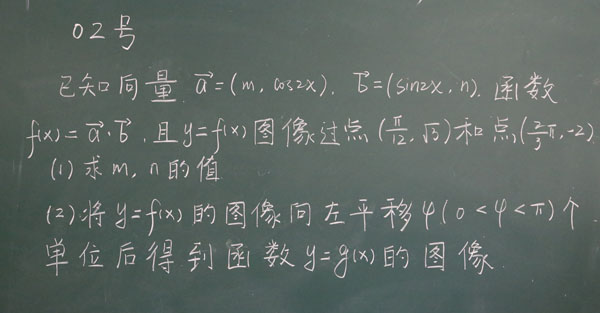 02号
已知向量 a⃗=(m, cos2x). b⃗=(sin2x, n). 函数
f(x)=a⃗·b⃗, 且y=f(x)图像过点(π/12, √3)和点(2/3π, -2)
(1) 求m, n的值
(2)将y=f(x)的图像向左平移φ(0<φ<π)个
单位后得到函数y=g(x)的图像